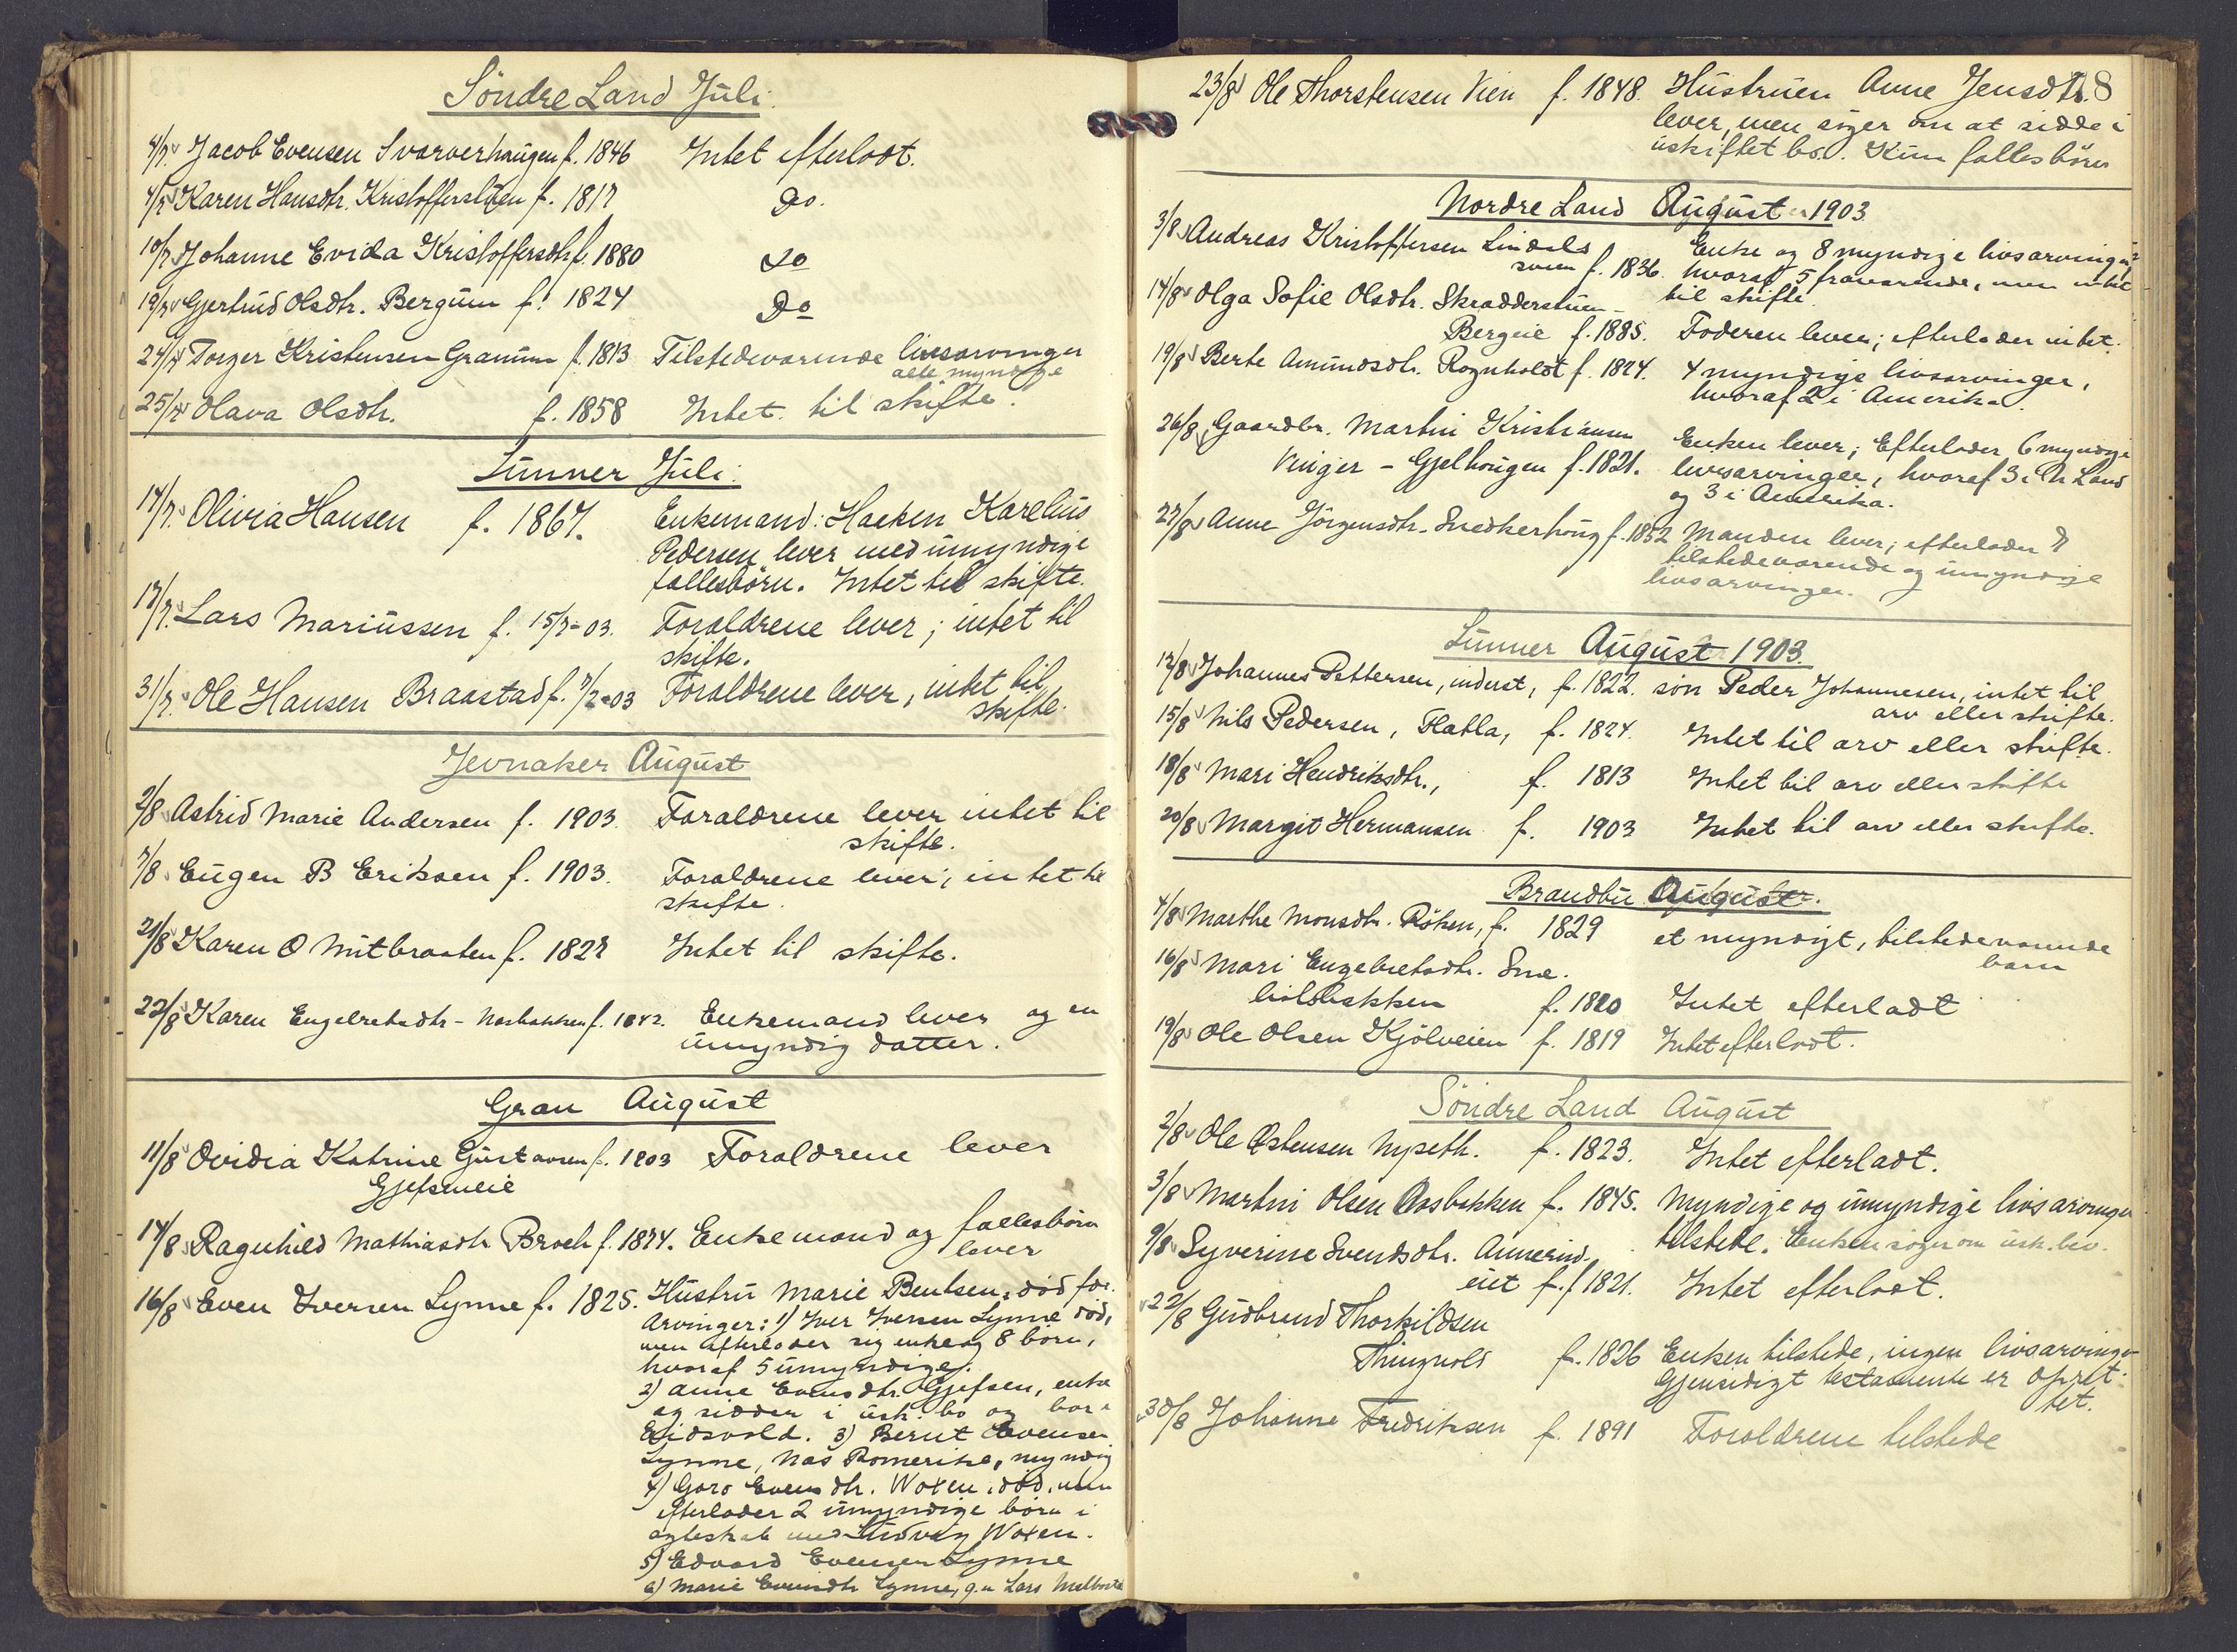 Söndre Land Juli.
4/7. Jacob Evensen Svarverhaugen f. 1846 Intet efterladt.
4/7 Karen Hansdtr. Kristofferslien f. 1817 Do.
10/7 Johanne Evida Kristoffersdtr f. 1880 Do
19/7 Gjertrud Olsdtr. Bergum f. 1824 Do
24/7 Torger Kristensen Granum f. 1813 Tilstedeværende livsarvinger
alle myndige
25/7 Olava Olsdtr. f. 1858 Intet til skifte.
Lunner Juli.
14/7. Olivia Hansen f. 1867. Enkemand: Haaken Karelius
Pedersen lever med umyndige
fællesbörn. Intet til skifte.
17/7. Lars Mariussen f. 15/7-03. Forældrene lever; intet til
skifte.
31/7. Ole Hansen Braastad f. 7/2-03 Forældrene lever, intet til
skifte.
Jevnaker August
2/8 Astrid Marie Andersen f. 1903. Forældrene lever intet til
skifte.
7/8 Eugen B Eriksen f. 1903. Forældrene lever; intet til
skifte.
21/8 Karen O Mutbraaten f. 1827 Intet til skifte.
22/8 Karen Engebretsdtr - Næsbakken f. 1842. Enkemand lever og en
umyndig datter.
Gran August
11/8 Ovidia Katrine Gustavsen f. 1903 Forældrene lever
Gjefseneie
14/8 Ragnhild Mathiasdtr Broch f. 1874. Enkemand og fællesbörn
lever
16/8 Even Iversen Lynne f. 1825. Hustru Marie Bentsen, död för.
Arvinger: 1) Iver Iversen Lynne död,
men efterlader sig enke og 8 börn,
hvoraf 5 umyndige.
2) Anne Evensdtr. Gjefsen, enke
og sidder i usk. bo og bor i
Eidsvold. 3) Bernt Evensen
Lynne, Næs Romerike, myndig
4) Goro Evensdtr. Woxen, död, men
efterlader 2 umyndige börn i
ægteskab med Ludvig Woxen.
5) Edvard Evensen Lynne
6) Marie Evensdtr Lynne, g.m. Lars Melbostad
23/8 Ole Thorstensen Vien f. 1848. Hustruen Anne Jensdtr. 78
lever, men söger om at sidde i
uskiftet bo. Kun fællesbörn
Nordre Land August 1903
3/8 Andreas Kristoffersen Lindals
sveen f. 1836. Enke og 8 myndige livsarvinger
hvoraf 5 fraværende, men intet
til skifte.
14/8 Olga Sofie Olsdtr. Skrædderstuen -
Bergeie f. 1885. Foderen lever; efterlader intet.
19/8 Berte Amundsdtr. Rognholdt f. 1824. 4 myndige livsarvinger,
hvoraf 2 i Amerika.
26/8 Gaardbr. Martin Kristiansen
Vinger - Gjelhougen f. 1821. Enken lever; Efterlader 6 myndige
livsarvinger, hvoraf 3 i N. Land
og 3 i Amerika.
27/8 Anne Jörgensdtr. Snedkerhoug f. 1852 Manden lever; efterlader 7
tilstedeværende og umyndige
livsarvinger.
Lunner August 1903.
12/8 Johannes Pettersen, inderst, f. 1822. sön Peder Johannesen, intet til
arv eller skifte.
15/8 Nils Pedersen, Flatla, f. 1824. Intet til arv eller skifte.
18/8 Mari Hendriksdtr., f. 1813 Intet til arv eller skifte
20/8 Margit Hermansen f. 1903 Intet til arv eller skifte.
Brandbu August.
4/8 Marthe Monsdtr. Röken, f. 1829 et myndigt, tilstedeværende
barn
16/8 Mari Engebretsdtr. Sme.
f. 1820 Intet efterladt
19/8 Ole Olsen Kjölveien f. 1819 Intet efterladt.
Söndre Land August
2/8 Ole Østensen Nyseth. f. 1823. Intet efterladt.
3/8 Martin Olsen Aasbakken f. 1845. Myndige og umyndige livsarvinger
tilstede. Enken söger om usk. bev.
9/8 Syverine Svendsdtr. Annerud
eiet f. 1821. Intet efterladt.
22/8 Gudbrand Thorkildsen
Thingvold f. 1826 Enken tilstede, ingen livsarvinger
Gjensidigt testamente er opret-
tet.
30/8 Johanne Fredriksen f. 1891 Forældrene tilstede